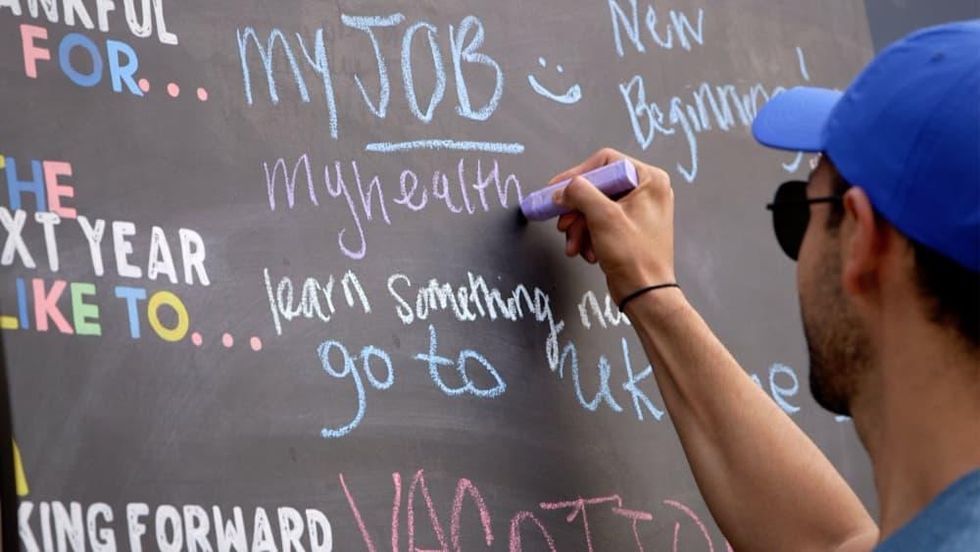 ANKFUL
FOR...
my JOB
New
Beginning!
my health
THE
XT YEAR
LIKE TO....
learn something
go to
KING FORWARD